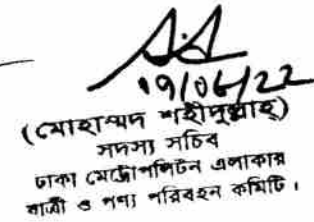 ১৭/০৬/২২
(মোহাম্মদ শহীদুল্লাহ্)
সদস্য সচিব
ঢাকা মেট্রোপলিটন এলাকায়
যাত্রী ও পণ্য পরিবহন কমিটি।